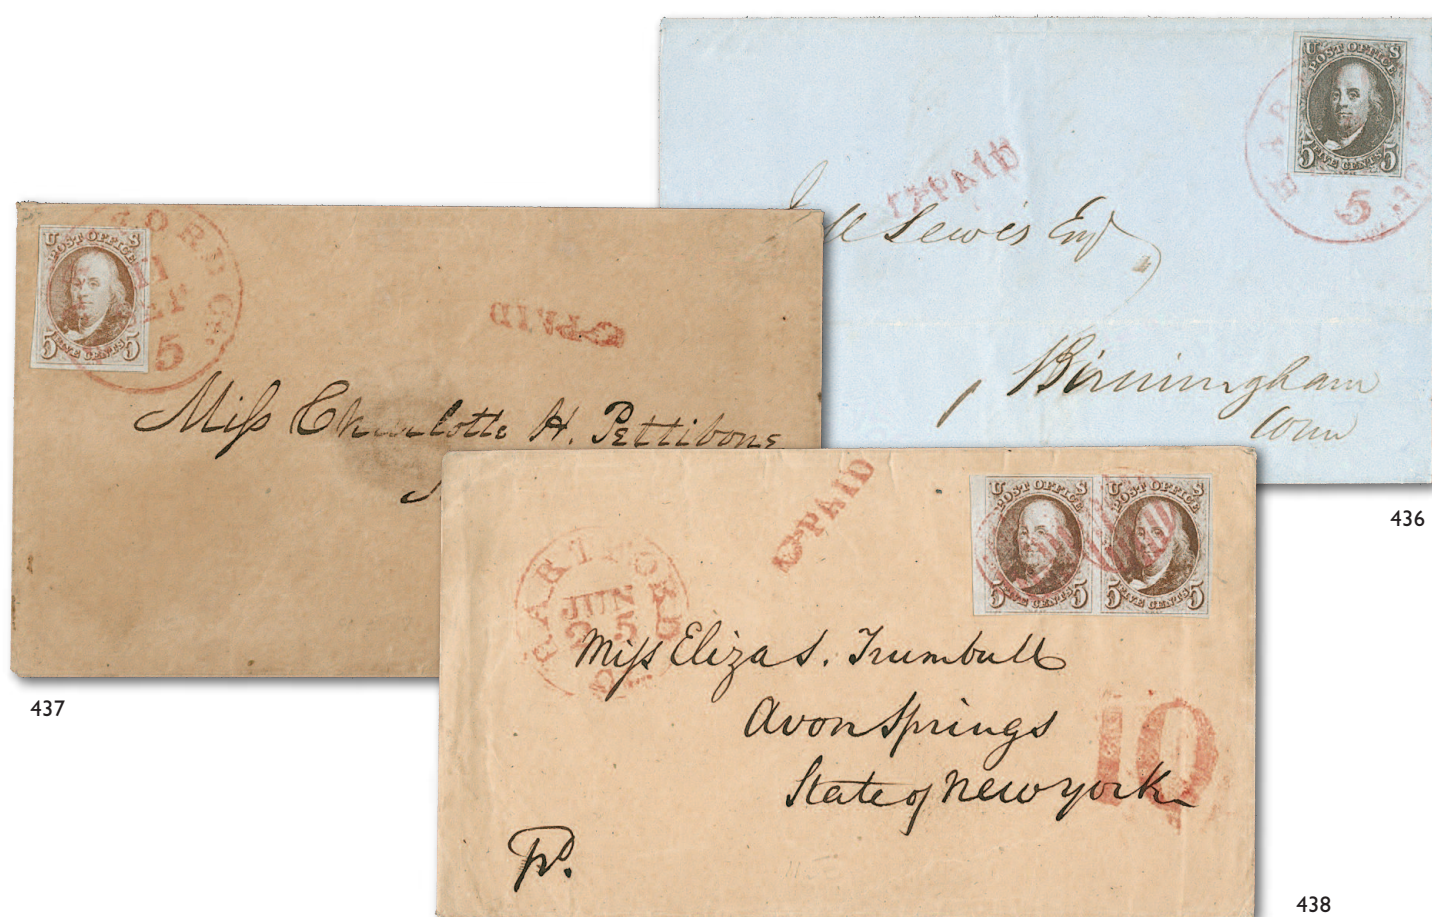 U S
POST OFFICE
5 FIVE CENTS 5
HAR
5
PAID
Lewis Esq
Birmingham
Conn
436
U S
POST OFFICE
5 FIVE CENTS 5
FORD Ct.
5
PAID
Miss Charlotte H. Pettibone
437
PAID
U S
POST OFFICE
5 FIVE CENTS 5
U S
POST OFFICE
5 FIVE CENTS 5
HARTFORD
JUN
5
Miss Eliza S. Trumbull
Avon Springs
State of New York
10
Pd.
438